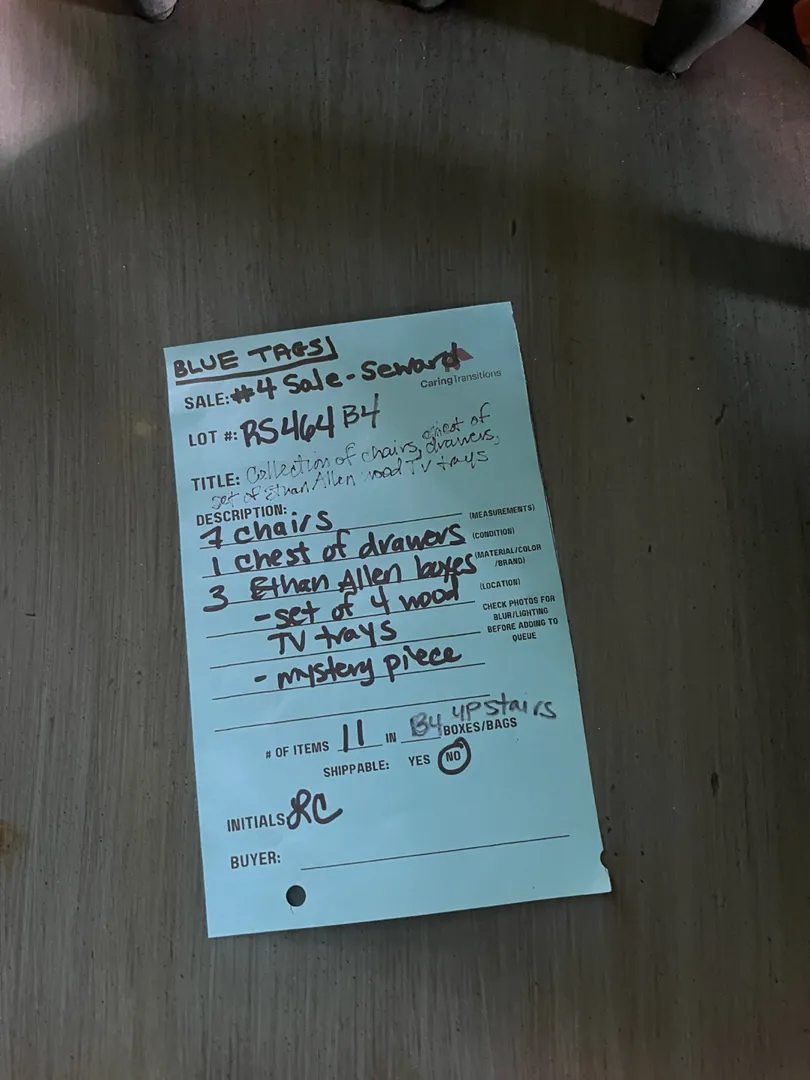 BLUE TAGS
SALE: #4 Sale - Seward
CaringTransitions
LOT #: RS464 B4
TITLE: Collection of chairs, chest of drawers,
set of Ethan Allen wood TV trays
DESCRIPTION:
7 chairs
(MEASUREMENTS)
1 chest of drawers
(CONDITION)
3 Ethan Allen boxes
(MATERIAL/COLOR
/BRAND)
- set of 4 wood
(LOCATION)
TV trays
CHECK PHOTOS FOR
BLUR/LIGHTING
BEFORE ADDING TO
QUEUE
- mystery piece
# OF ITEMS 11 IN B4 upstairs BOXES/BAGS
SHIPPABLE: YES NO
INITIALS: RC
BUYER: